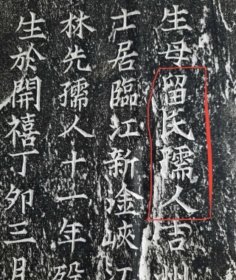 生母留民孺人吉
士居臨江新淦峽江
林先孺人十一年歿
生於開禧丁卯三月